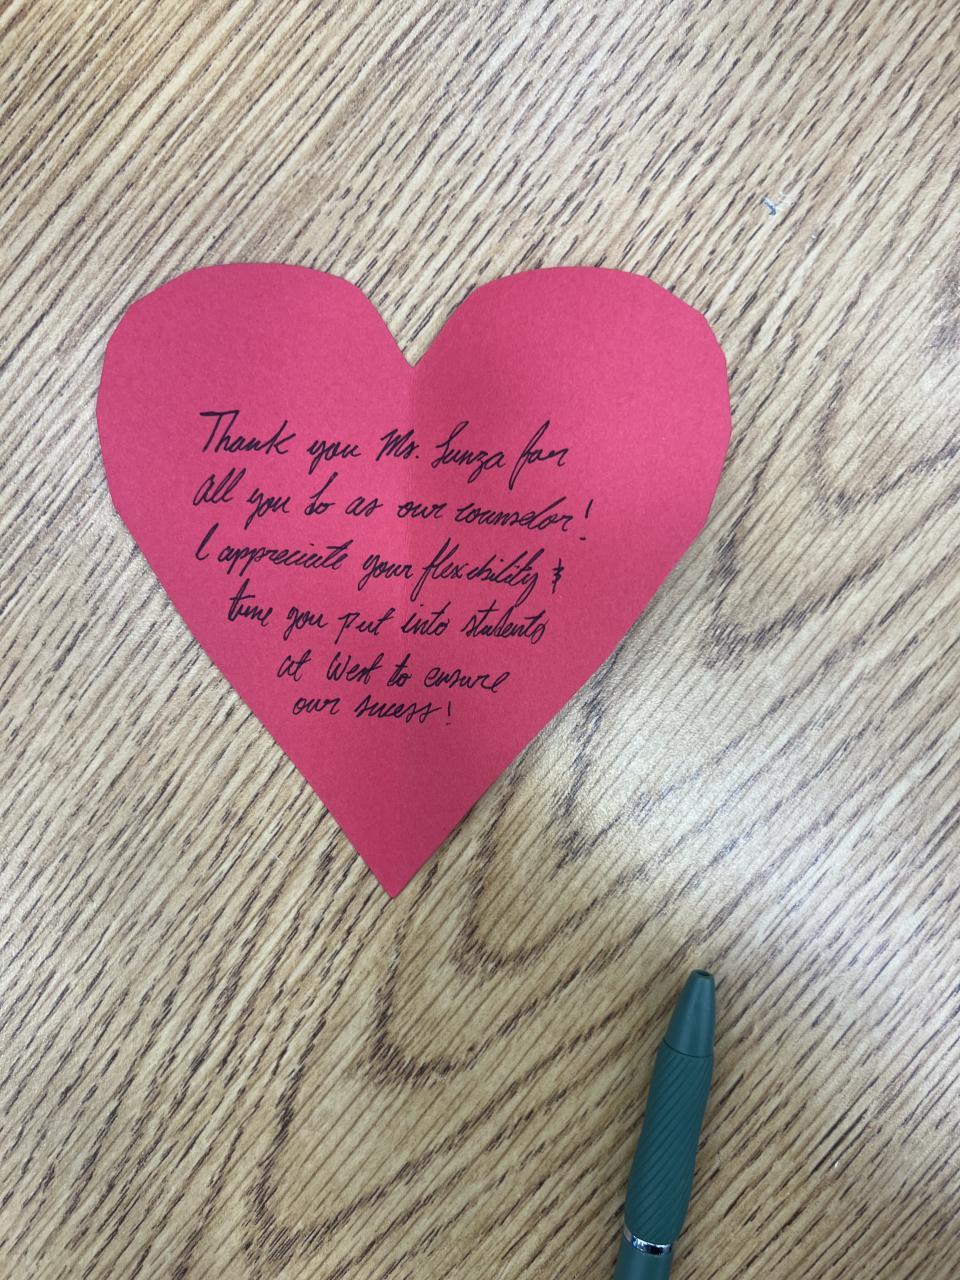 Thank you Ms. Lunza for
All you do as our counselor!
I appreciate your flexibility &
time you put into students
at West to ensure
our sucess!